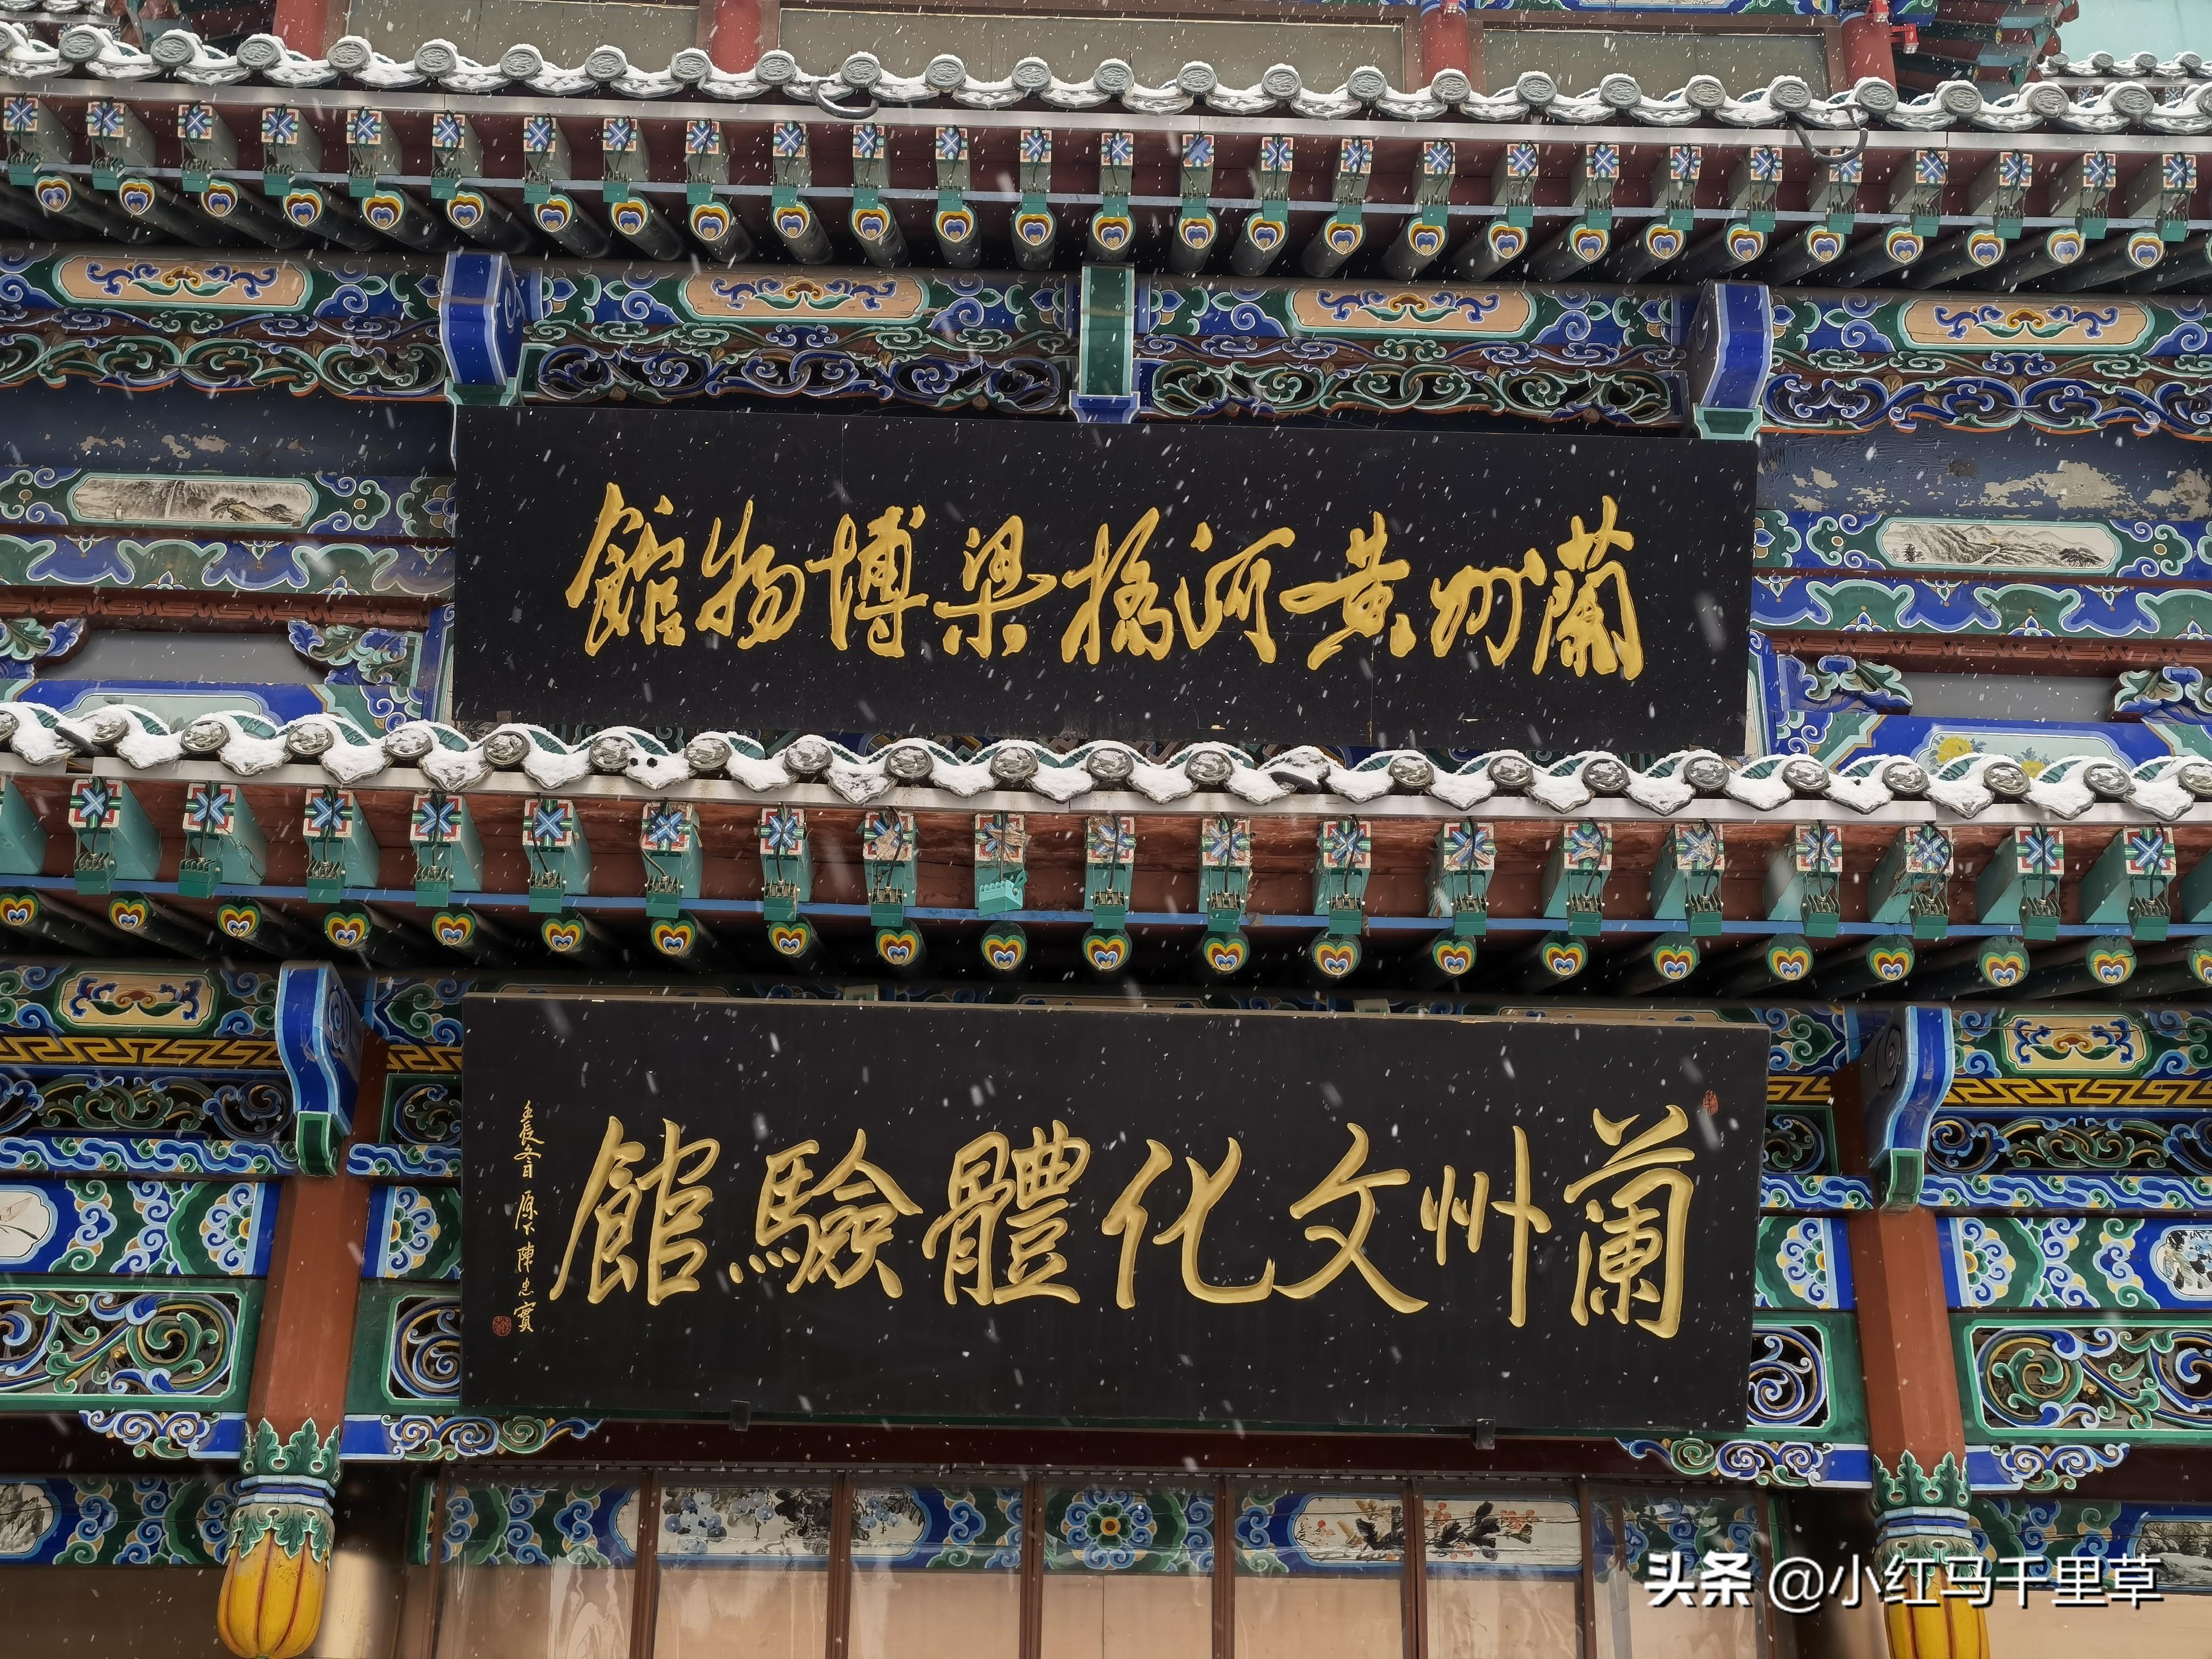 蘭州黄河橋梁博物館
蘭州文化體驗館
壬辰冬日 原下 陳忠實
头条 @小红马千里草